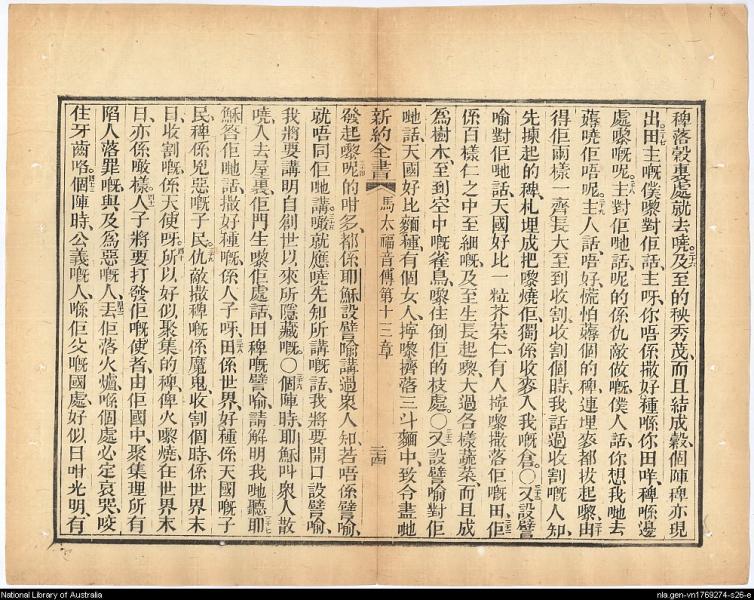 稗落穀裏處就去嘵及至的秧秀茂而且結成穀個陣稗亦現
出田主嘅僕嚟對佢話主呀你唔係撒好種喺你田咩稗喺邊
處嚟嘅呢主對佢哋話呢的係仇敵做嘅僕人話你想我哋去
薅嘵佢唔呢主人話唔好慌怕薅個的稗連埋麥都拔起嚟由
得佢兩樣一齊長大至到收割收割個時我話過收割嘅人知
先揀起的稗札埋成把嚟燒佢獨係收麥入我嘅倉〇又設譬
喻對佢哋話天國好比一粒芥菜仁有人擰嚟撒落佢嘅田佢
係百樣仁之中至細嘅及至生長起嚟大過各樣蔬菜而且成
爲樹木至到空中嘅雀鳥嚟住倒佢的枝處〇又設譬喻對佢
哋話天國好比麵種有個女人擰嚟擠落三斗麵中致令盡哋
新約全書 馬太福音傳第十三章 二十四
發起嚟呢的咁多都係耶穌設譬喻講過衆人知若唔係譬喻
就唔同佢哋講噉就應嘵先知所講嘅話我將要開口設譬喻
我將要講明自創世以來所隱藏嘅〇個陣時耶穌叫衆人散
嘵入去屋裏佢門生嚟佢處話田稗嘅譬喻請解明我哋聽耶
穌答佢哋話撒好種嘅係人子呀田係世界好種係天國嘅子
民稗係兇惡嘅子民仇敵撒稗嘅係魔鬼收割個時係世界末
日收割嘅係天使呀所以好似聚集的稗俾火嚟燒在世界末
日亦係噉樣人子將要打發佢嘅使者由佢國中聚集理所有
陷人落罪嘅與及爲惡嘅人丟佢落火爐喺個處必定哀哭咬
住牙齒咯個陣時公義嘅人喺佢父嘅國處好似日咁光明有
National Library of Australia
nla.gen-vn1769274-s26-e